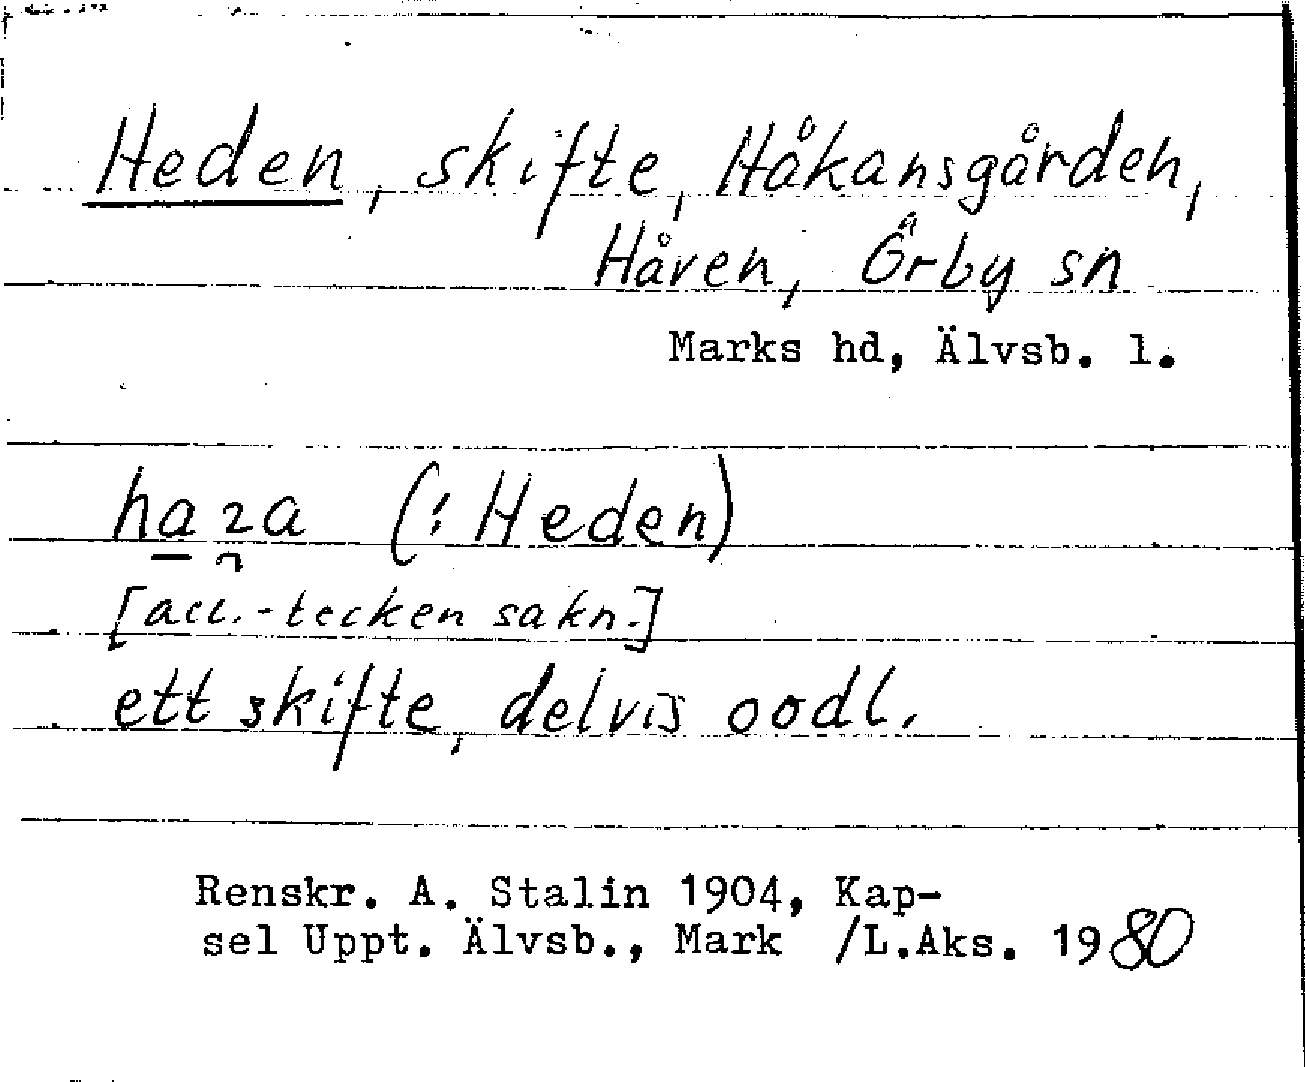 Heden, skifte, Håkansgården,
Håven, Örby sn
Marks hd, Älvsb. l.
haza (: Heden)
[acc.-tecken sakn.]
ett skifte, delvis oodl.
Renskr. A. Stalin 1904, Kap-
sel Uppt. Älvsb., Mark /L.Aks. 1980